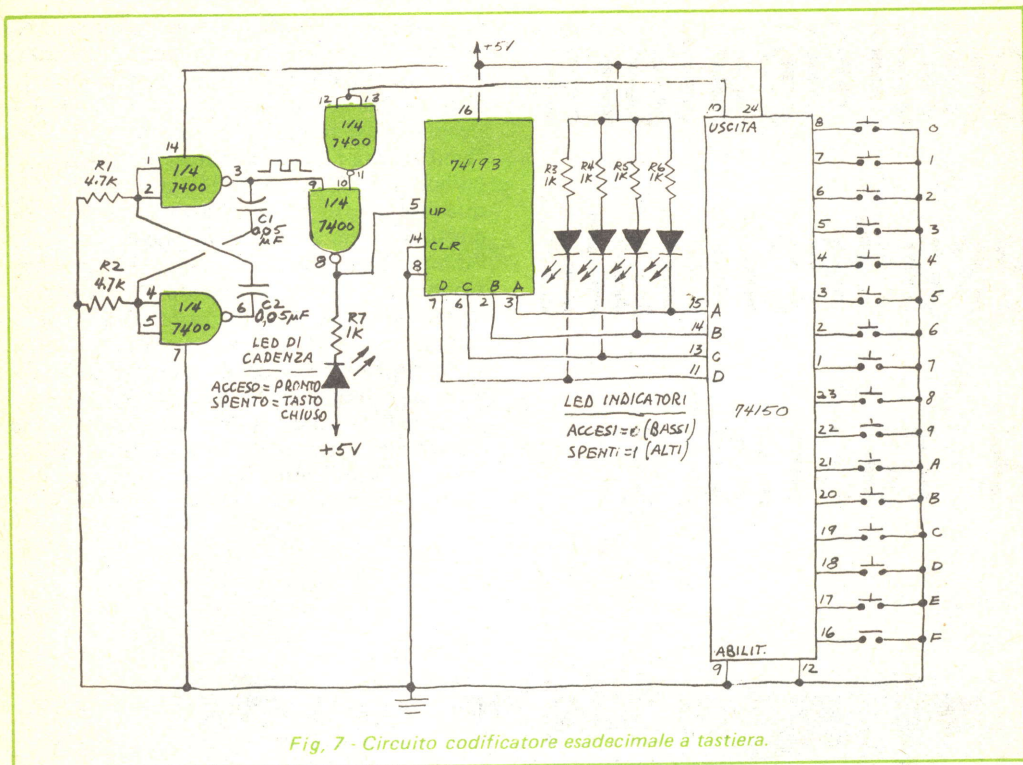 +5V
14
1
2
1/4
7400
3
R1
4.7K
C1
0,05
µF
R2
4.7K
4
5
1/4
7400
6
7
C2
0,05µF
12
13
1/4
7400
11
9
10
1/4
7400
8
R7
1K
LED DI
CADENZA
ACCESO = PRONTO
SPENTO = TASTO
CHIUSO
+5V
16
74193
5
UP
14
CLR
8
D
C
B
A
7
6
2
3
R3
1K
R4
1K
R5
1K
R6
1K
LED INDICATORI
ACCESI = 0 (BASSI)
SPENTI = 1 (ALTI)
10
24
USCITA
15
A
14
B
13
C
11
D
74150
ABILIT.
9
12
8
0
7
1
6
2
5
3
4
4
3
5
2
6
1
7
23
8
22
9
21
A
20
B
19
C
18
D
17
E
16
F
Fig, 7 - Circuito codificatore esadecimale a tastiera.